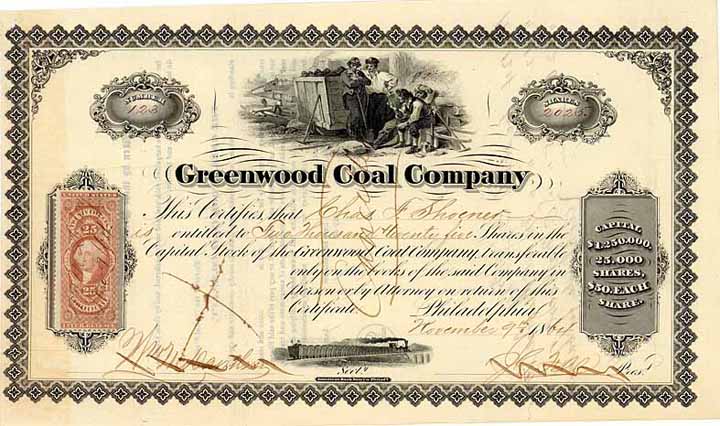 NUMBER
123
SHARES
2025
Greenwood Coal Company
This Certifies, that Chas F Shoener
is entitled to Two Thousand Twenty five Shares in the
Capital Stock of the Greenwood Coal Company, transferable
only on the books of the said Company in
person or by Attorney on return of this
Certificate.
Philadelphia
November 9th 1864
25
25
CAPITAL
$1,250,000.
25,000
SHARES,
$50. EACH
SHARE.
Sect.y
Pres.t